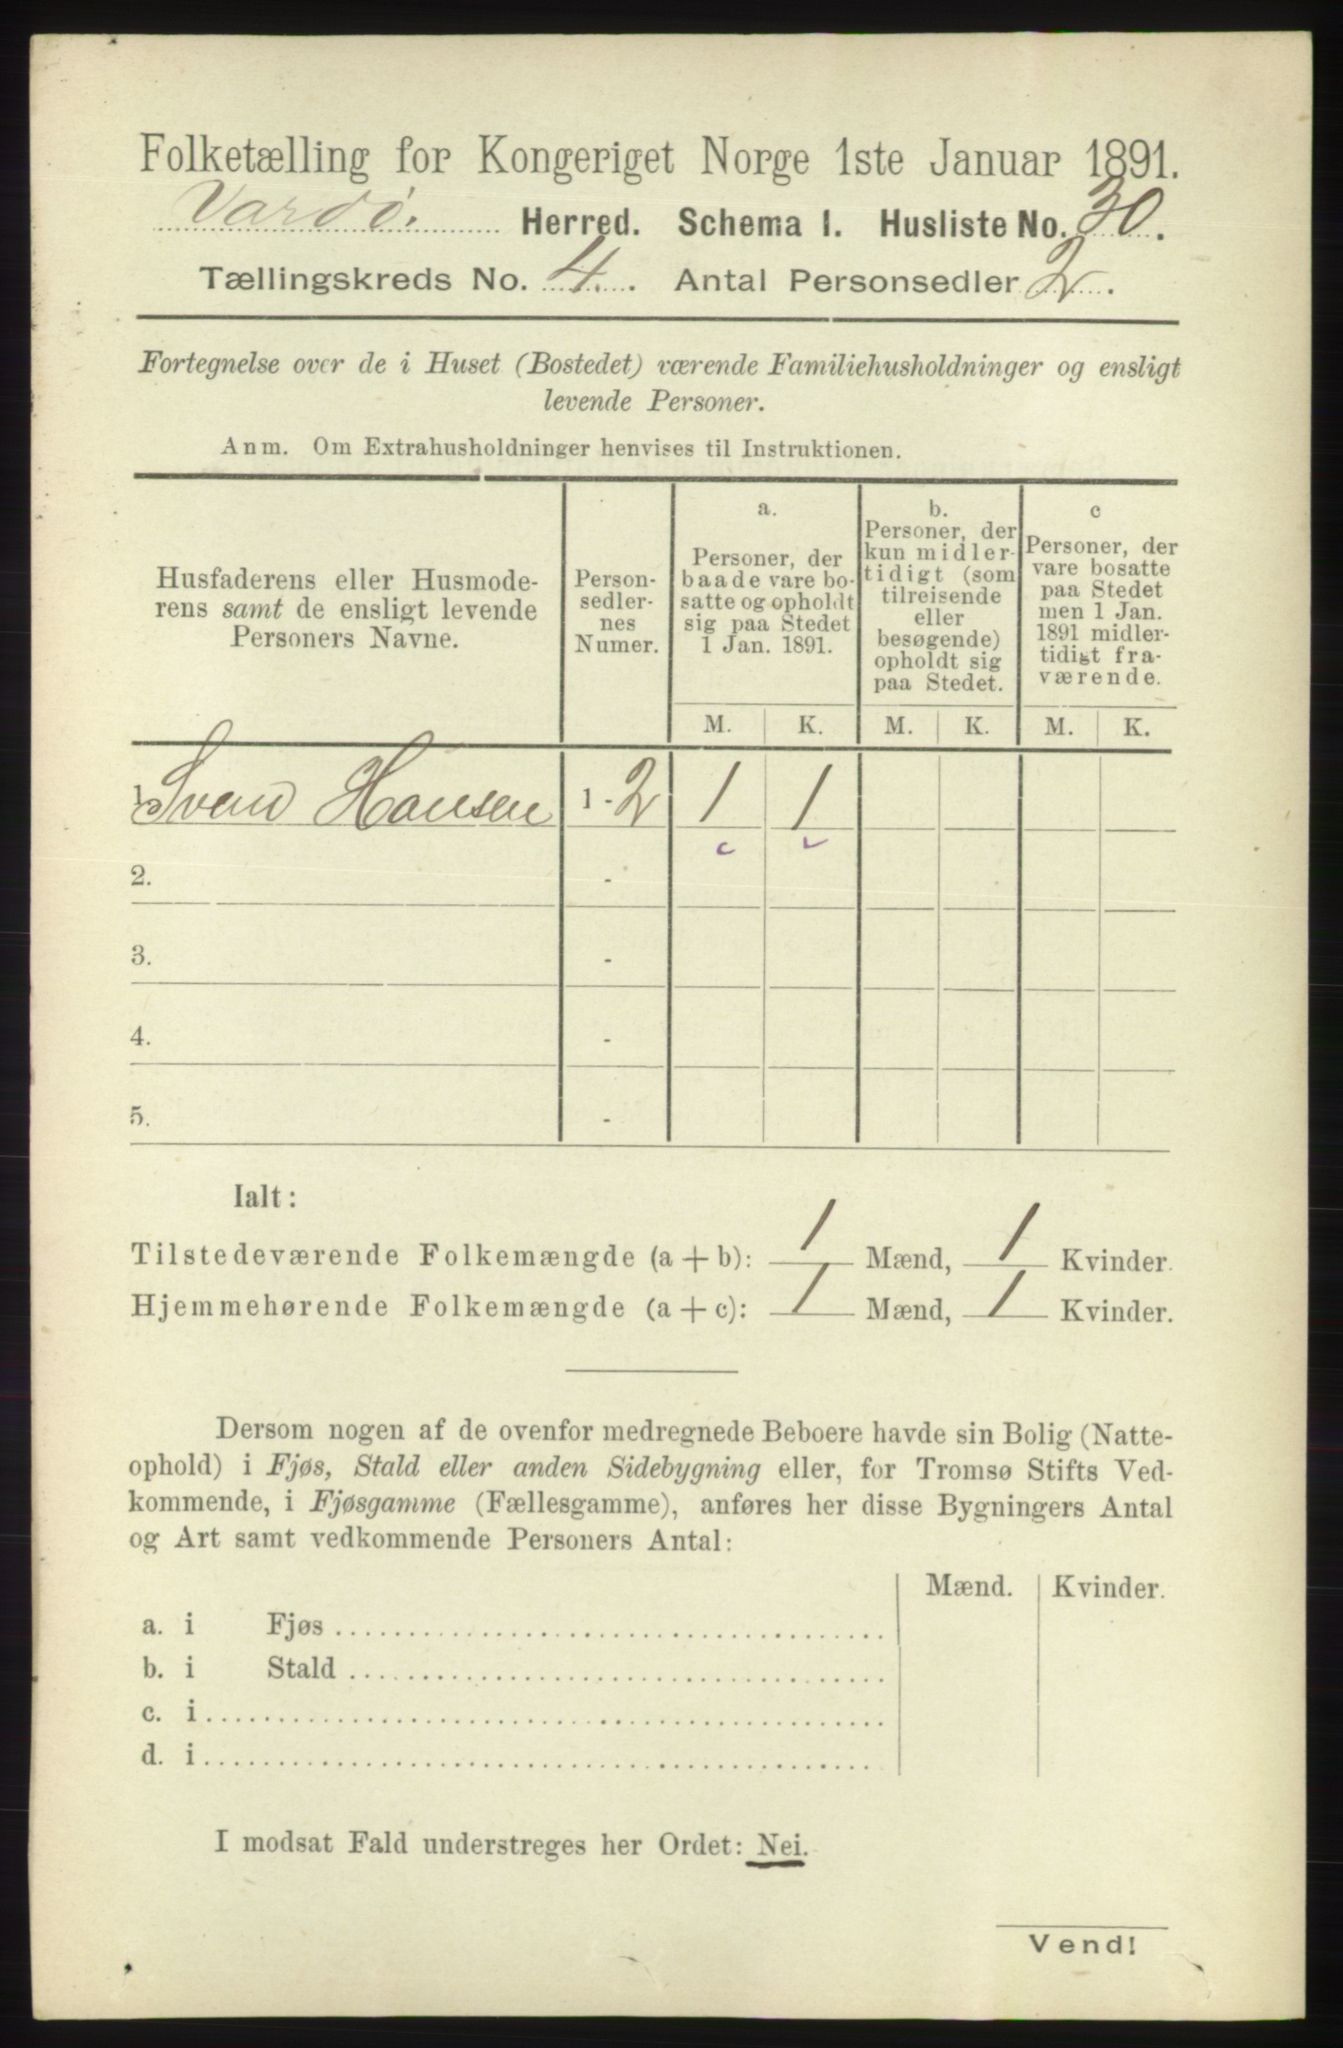 Folketælling for Kongeriget Norge 1ste Januar 1891.
Vardø. Herred. Schema I. Husliste No. 30.
Tællingskreds No. 4. Antal Personsedler 2.
Fortegnelse over de i Huset (Bostedet) værende Familiehusholdninger og ensligt
levende Personer.
Anm. Om Extrahusholdninger henvises til Instruktionen.
Husfaderens eller Husmode-
rens samt de ensligt levende
Personers Navne.
Person-
sedler-
nes
Numer.
a.
Personer, der
baade vare bo-
satte og opholdt
sig paa Stedet
1 Jan. 1891.
b.
Personer, der
kun midler-
tidigt (som
tilreisende
eller
besøgende)
opholdt sig
paa Stedet.
c
Personer, der
vare bosatte
paa Stedet
men 1 Jan.
1891 midler-
tidigt fra-
værende.
M. K. M. K. M. K.
1. Svend Hansen 1 - 2 1 1
2. -
3. -
4. -
5. -
Ialt:
Tilstedeværende Folkemængde (a + b): 1 Mænd, 1 Kvinder.
Hjemmehørende Folkemængde (a + c): 1 Mænd, 1 Kvinder.
Dersom nogen af de ovenfor medregnede Beboere havde sin Bolig (Natte-
ophold) i Fjøs, Stald eller anden Sidebygning eller, for Tromsø Stifts Ved-
kommende, i Fjøsgamme (Fællesgamme), anføres her disse Bygningers Antal
og Art samt vedkommende Personers Antal:
Mænd. Kvinder.
a. i Fjøs
b. i Stald
c. i
d. i
I modsat Fald understreges her Ordet: Nei.
Vend!